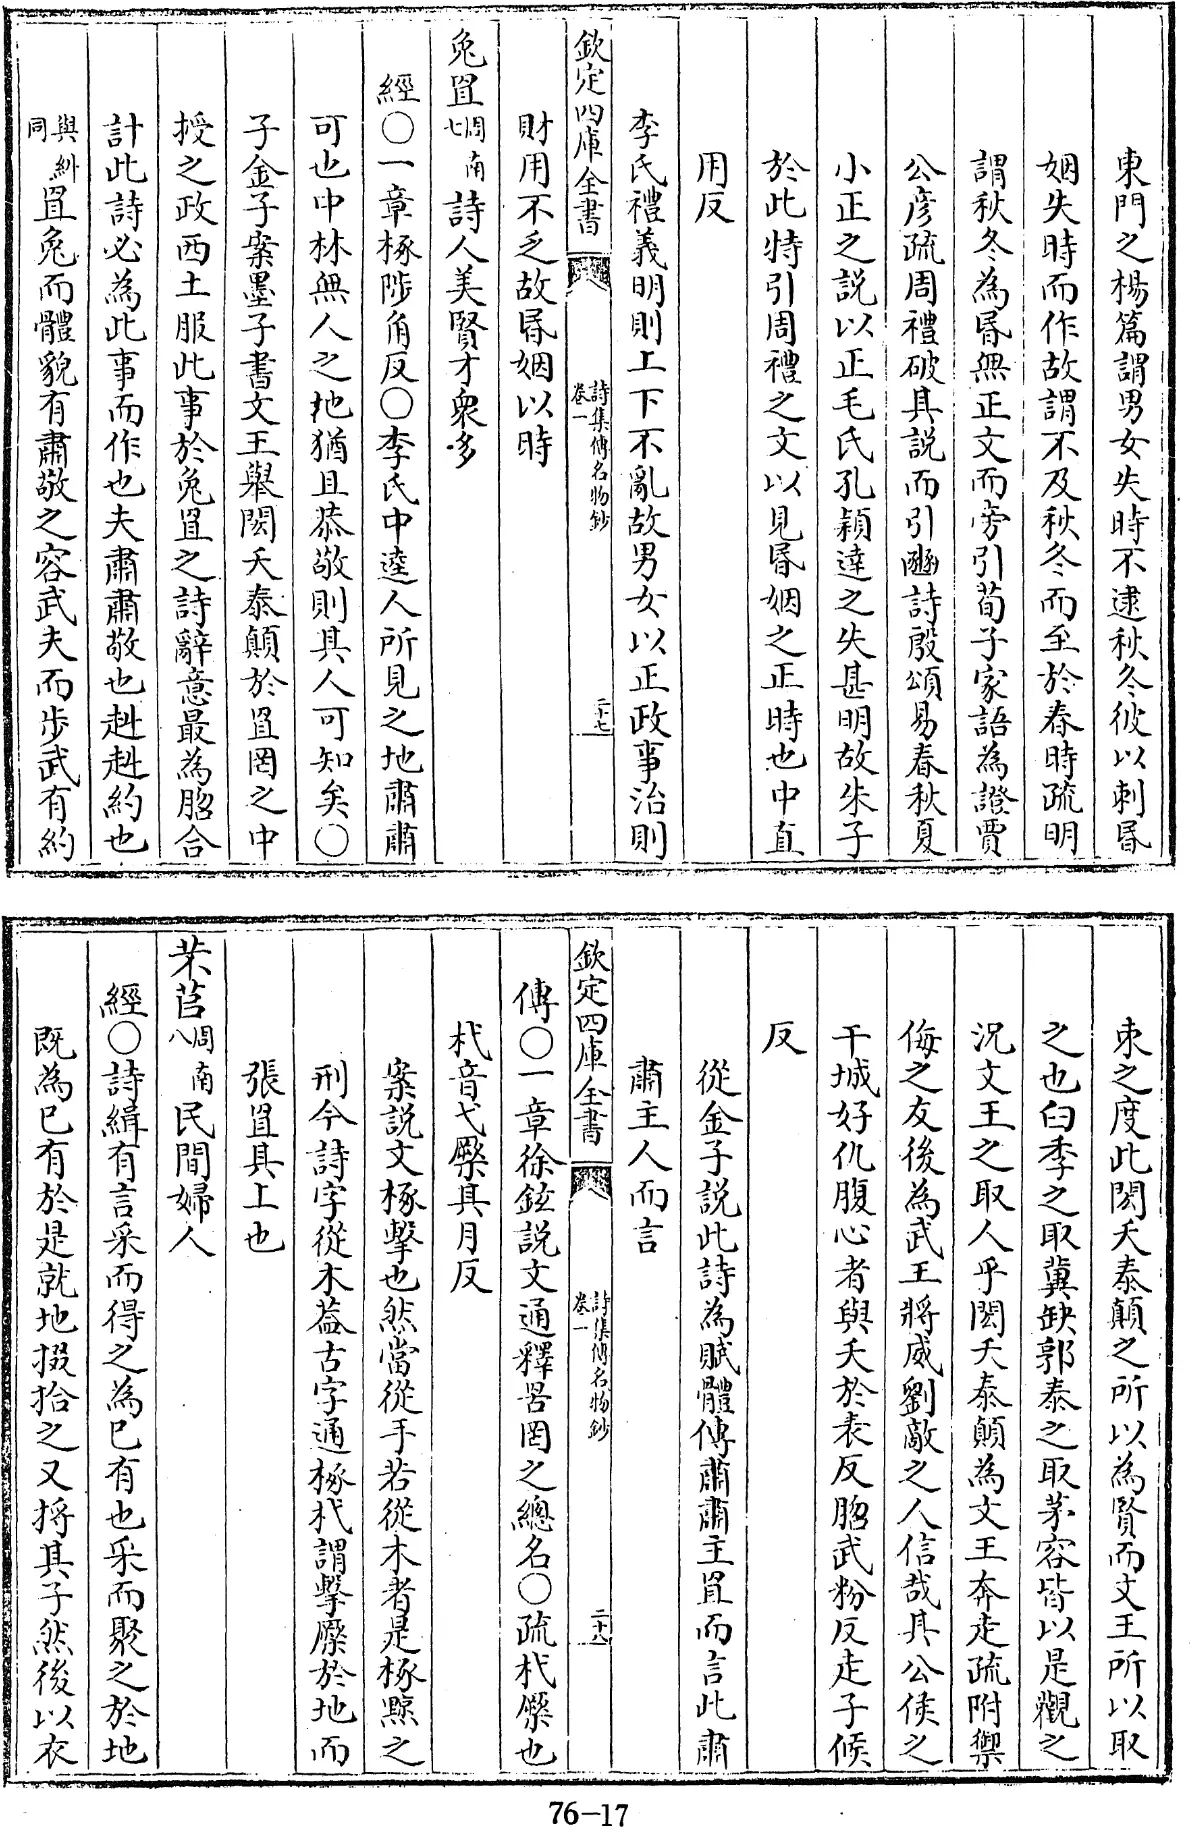 東門之楊篇謂男女失時不逮秋冬彼以刺昏
姻失時而作故謂不及秋冬而至於春時疏明
謂秋冬為昏無正文而旁引荀子家語為證賈
公彦疏周禮破其説而引豳詩殷頌易春秋夏
小正之説以正毛氏孔穎達之失甚明故朱子
於此特引周禮之文以見昏姻之正時也中直
用反
李氏禮義明則上下不亂故男女以正政事治則
欽定四庫全書
詩集傳名物鈔
卷一
二十七
財用不乏故昏姻以時
兔罝周南七詩人美賢才衆多
經○一章椓陟角反○李氏中逵人所見之地肅肅
可也中林無人之地猶且恭敬則其人可知矣○
子金子案墨子書文王舉閎夭泰顛於罝罔之中
授之政西土服此事於兔罝之詩辭意最為脗合
計此詩必為此事而作也夫肅肅敬也赳赳約也
與糾同罝兔而體貌有肅敬之容武夫而步武有約
束之度此閎夭泰顛之所以為賢而文王所以取
之也臼季之取冀缺郭泰之取茅容皆以是觀之
況文王之取人乎閎夭泰顛為文王奔走疏附禦
侮之友後為武王將威劉敵之人信哉其公侯之
干城好仇腹心者與夭於表反脗武粉反走子候
反
從金子説此詩為賦體傳肅肅主罝而言此肅
肅主人而言
欽定四庫全書
詩集傳名物鈔
卷一
二十八
傳○一章徐鉉説文通釋罟罔之總名○疏杙橜也
杙音弋橜其月反
案説文椓擊也然當從手若從木者是椓黥之
刑今詩字從木葢古字通椓杙謂擊橜於地而
張罝其上也
芣苢周南八民間婦人
經○詩緝有言采而得之為已有也采而聚之於地
既為已有於是就地掇拾之又捋其子然後以衣
76-17